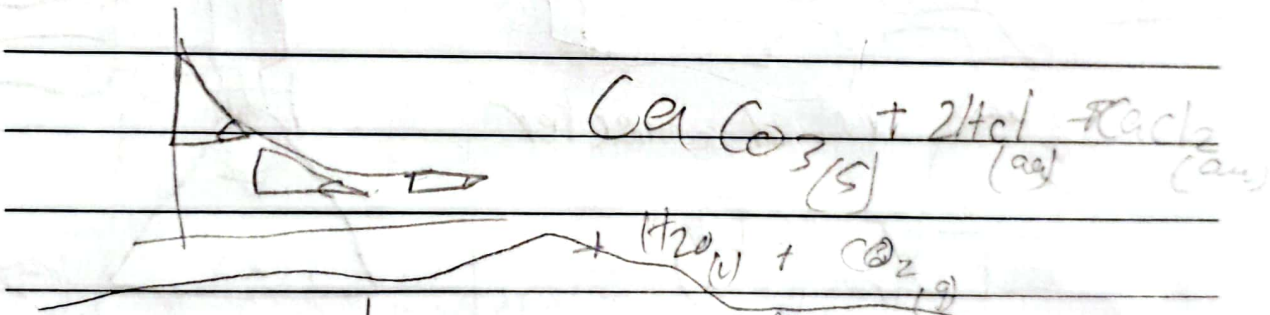 CaCO3(s) + 2Hcl(aq) → CaCl2(aq)
+ H2O(l) + CO2(g)